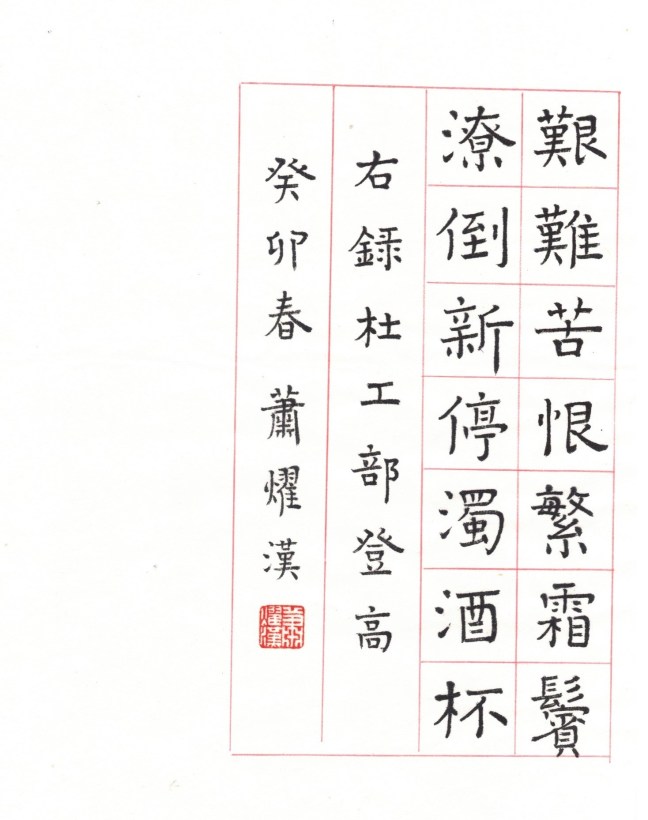 艱難苦恨繁霜鬢
潦倒新停濁酒杯
右録杜工部登高
癸卯春 蕭燿漢
蕭燿漢